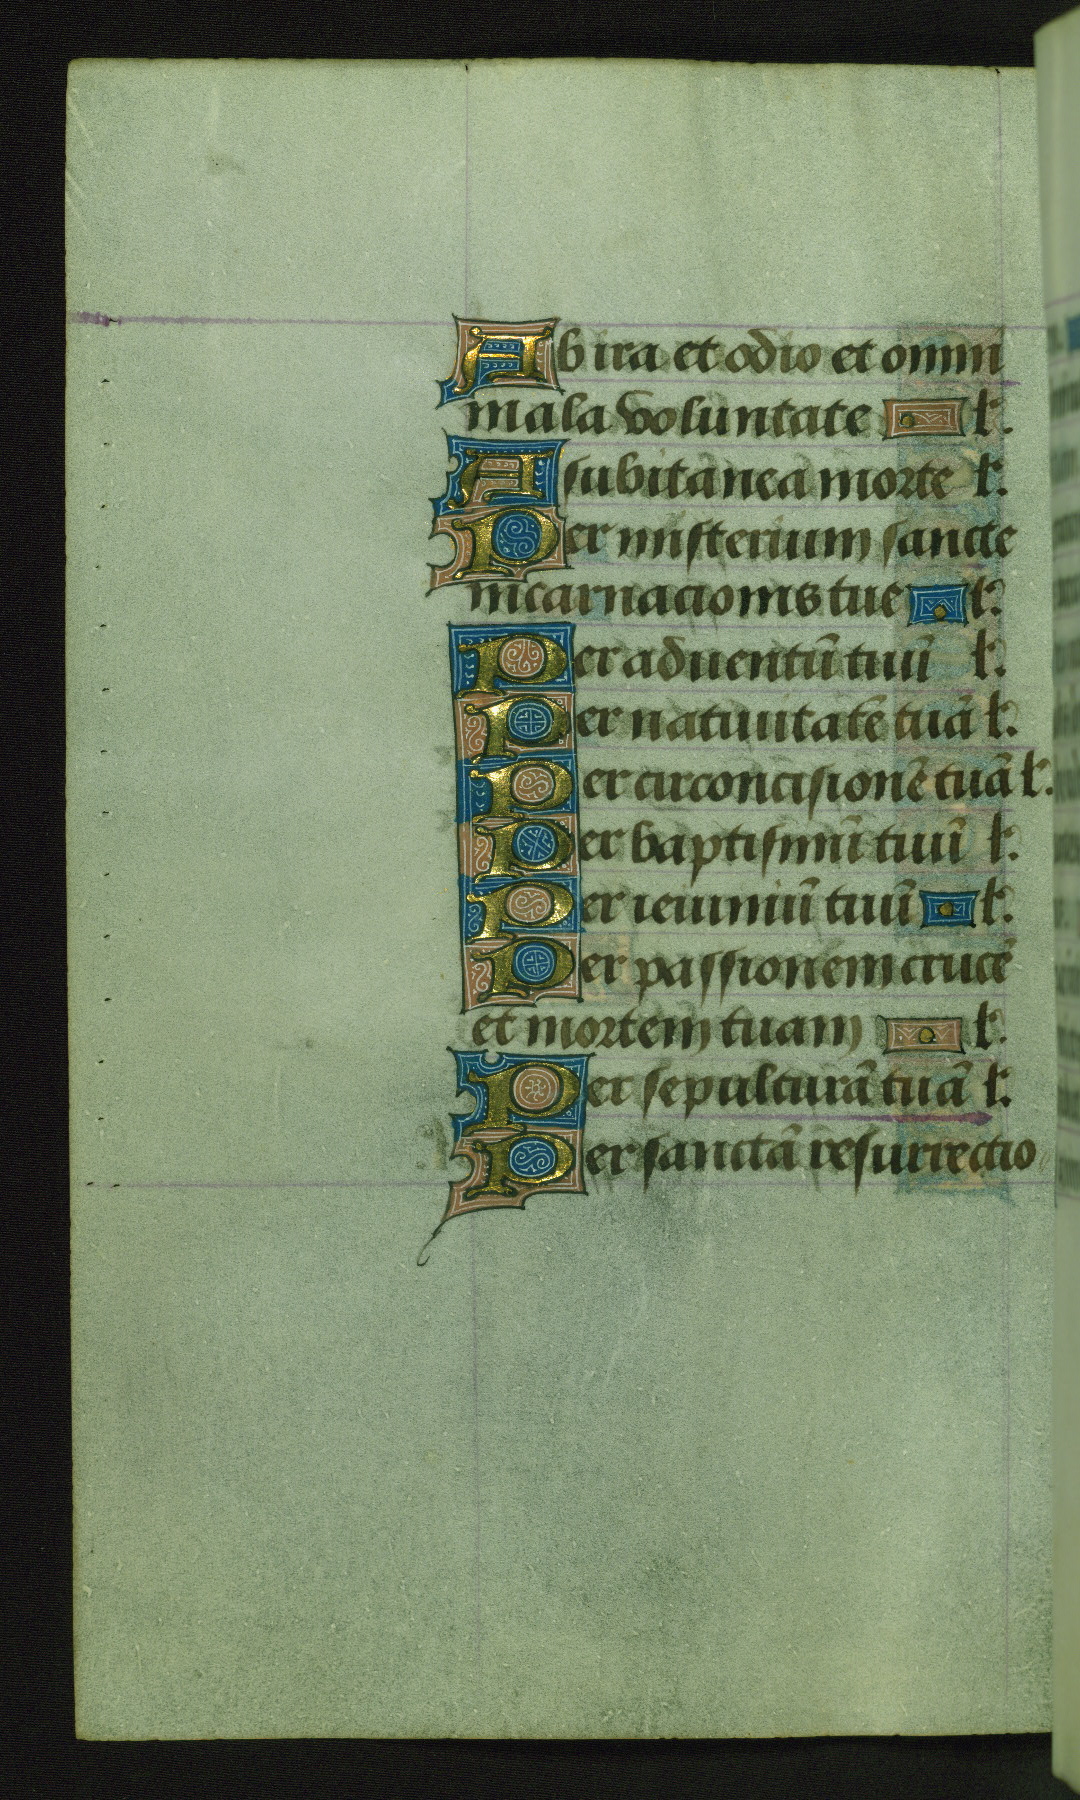 Ab ira et odio et omni
mala voluntate l.
A subitanea morte l.
Per misterium sancte
incarnacionis tue l.
Per aduentū tuū l.
Per natiuitatē tuā l.
Per circoncisionē tuā l.
Per baptismū tuū l.
Per ieiuniū tuū l.
Per passionem crucē
et mortem tuam l.
Per sepulturā tuā l.
Per sanctā resurrectio